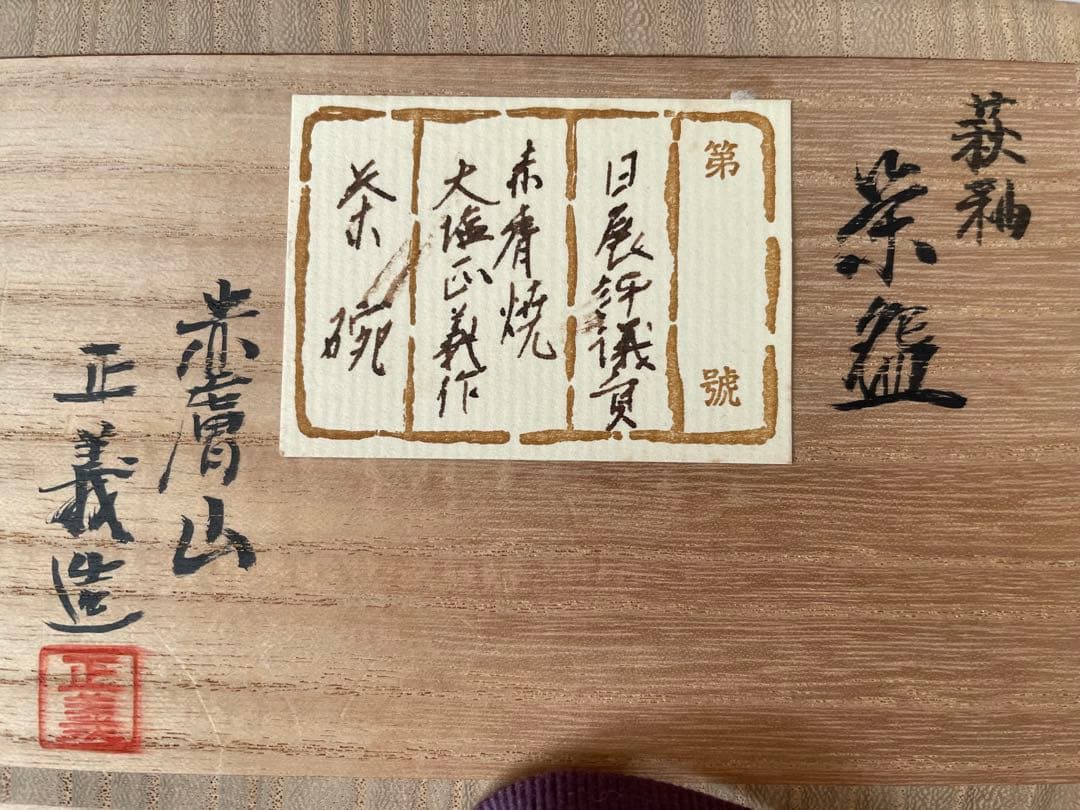 萩釉
茶盌
第 號
日展評議員
赤膚焼
大塩正義作
茶碗
赤膚山
正義造
正義